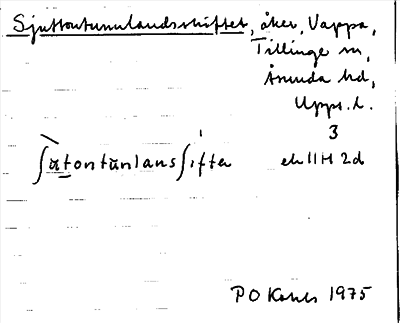 Sjuttontunnlandsskiftet, åker, Vappa,
Tillinge sn,
Åsunda hd,
Upps. l.
3
ʃu̠t̠ontūnlansʃiftɘ ek 11H 2d
P O 1975